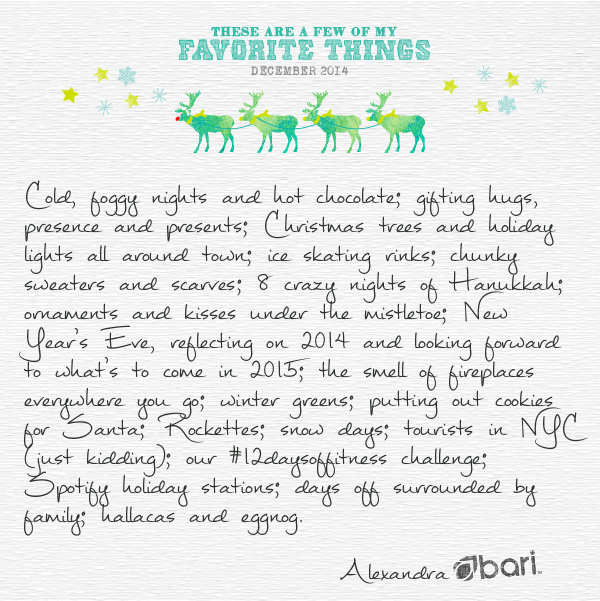 THESE ARE A FEW OF MY
FAVORITE THINGS
DECEMBER 2014
Cold, foggy nights and hot chocolate; gifting hugs,
presence and presents; Christmas trees and holiday
lights all around town; ice skating rinks; chunky
sweaters and scarves; 8 crazy nights of Hanukkah;
ornaments and kisses under the mistletoe; New
Year's Eve, reflecting on 2014 and looking forward
to what's to come in 2015; the smell of fireplaces
everywhere you go; winter greens; putting out cookies
for Santa; Rockettes; snow days; tourists in NYC
(just kidding); our #12daysoffitness challenge;
Spotify holiday stations; days off surrounded by
family; hallacas and eggnog.
Alexandra bari